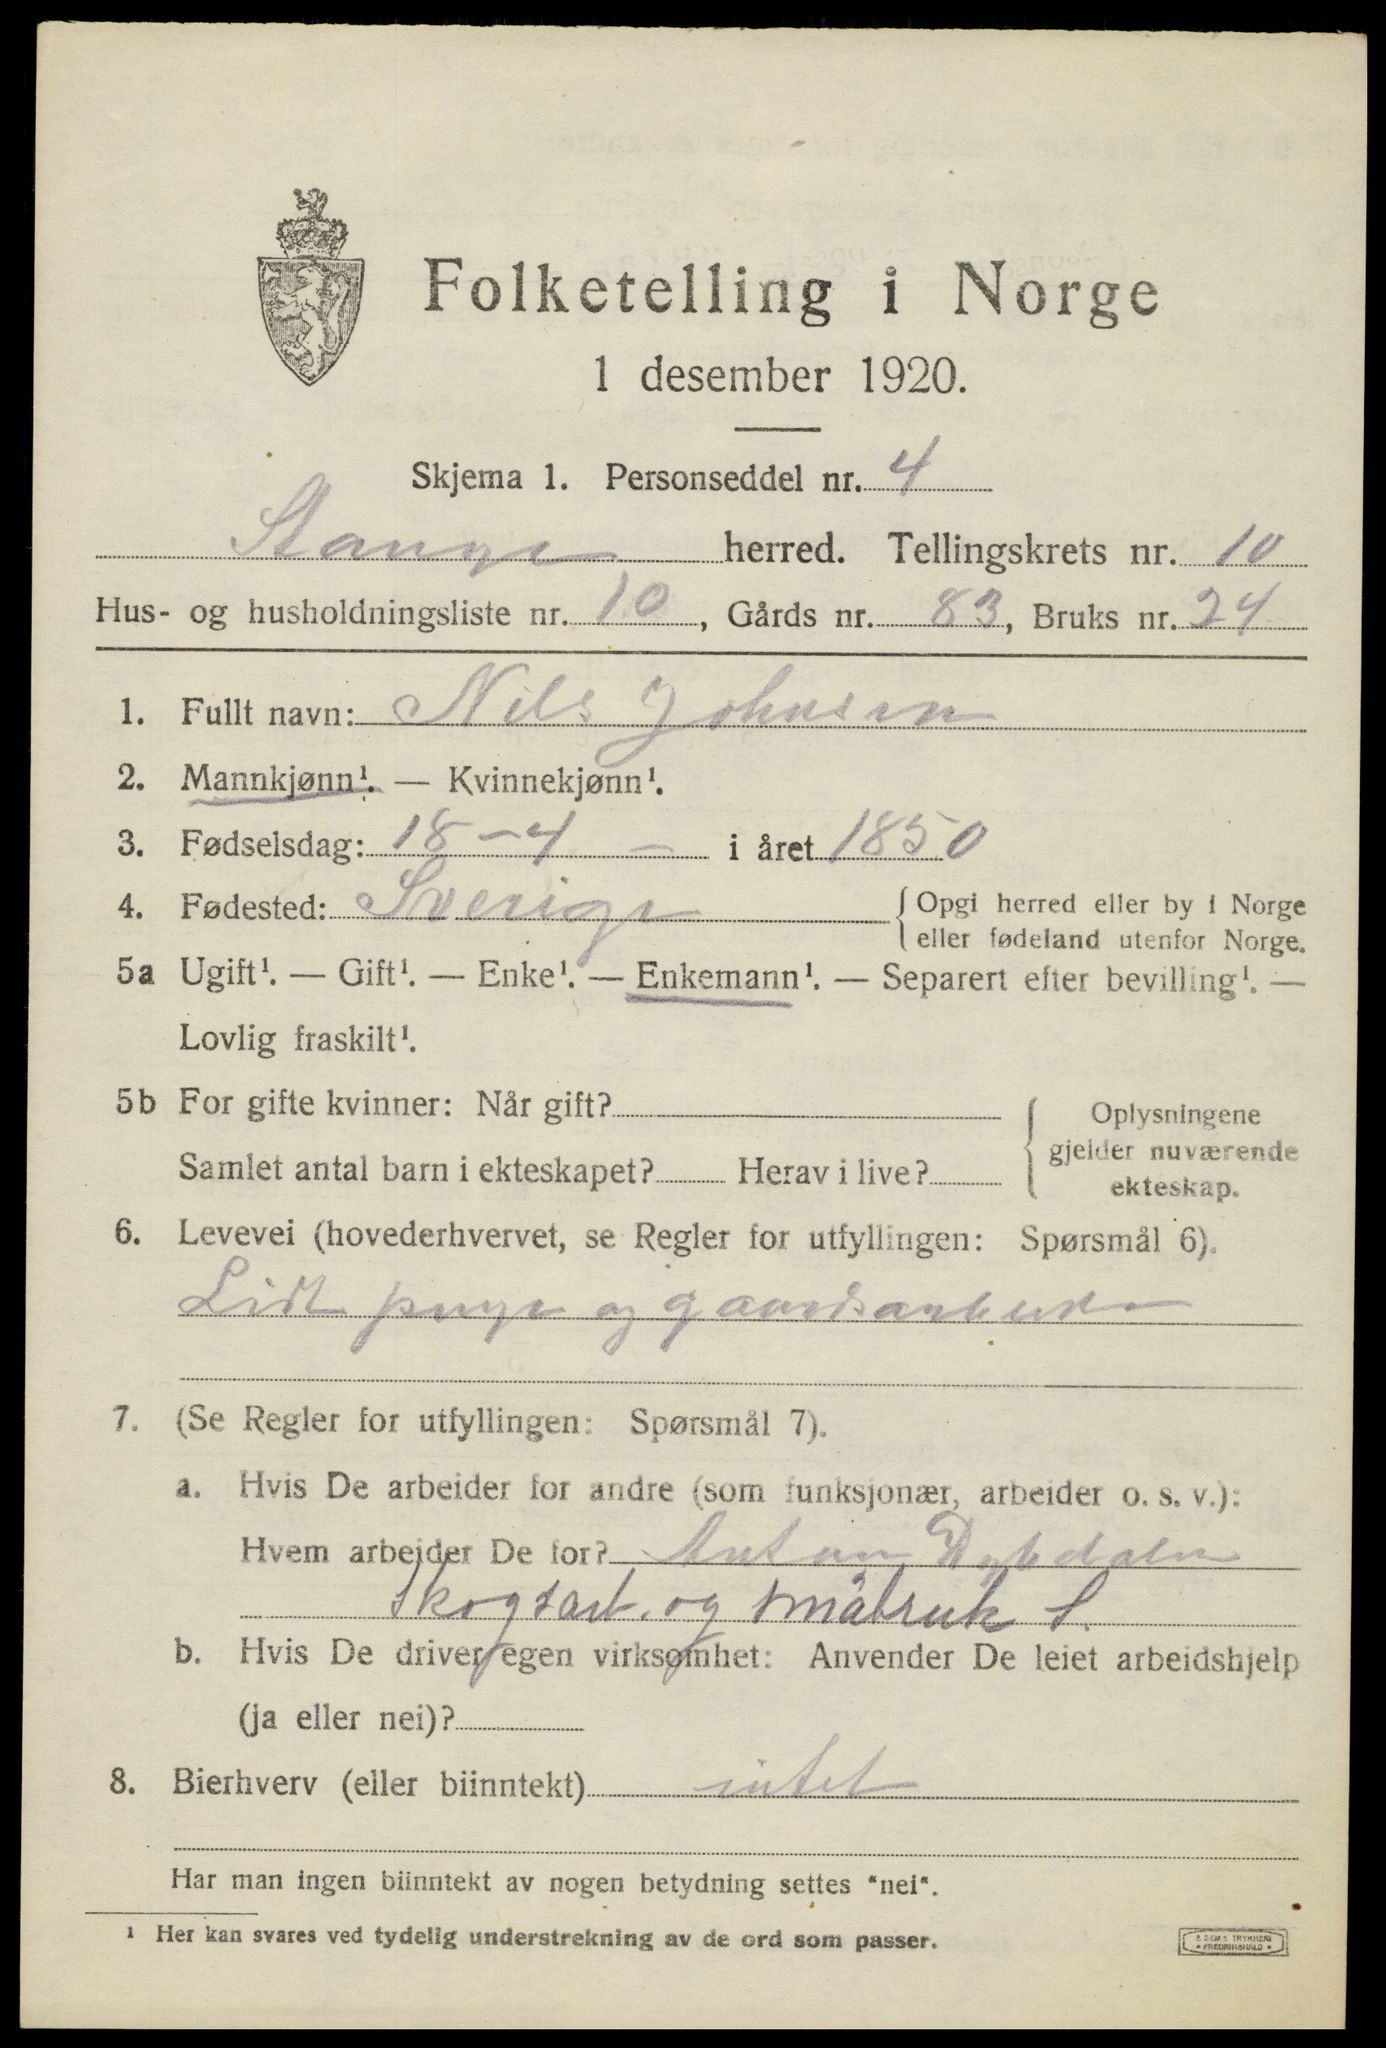 Folketelling i Norge
1 desember 1920.
Skjema 1. Personseddel nr. 4
Stange herred. Tellingskrets nr. 10
Hus- og husholdningsliste nr. 10, Gårds nr. 83, Bruks nr. 24
1. Fullt navn: Nils Johnsen
2. Mannkjønn¹. — Kvinnekjønn¹.
3. Fødselsdag: 18-4 - i året 1850
4. Fødested: Sverige { Opgi herred eller by i Norge
eller fødeland utenfor Norge.
5a Ugift¹. — Gift¹. — Enke¹. — Enkemann¹. — Separert efter bevilling¹. —
Lovlig fraskilt¹.
5b For gifte kvinner: Når gift?
Samlet antal barn i ekteskapet? Herav i live?
Oplysningene
gjelder nuværende
ekteskap.
6. Levevei (hovederhvervet, se Regler for utfyllingen: Spørsmål 6).
Lidt og gaardsarbeide
7. (Se Regler for utfyllingen: Spørsmål 7).
a. Hvis De arbeider for andre (som funksjonær, arbeider o. s. v.):
Hvem arbeider De for? Anton Dybdalen
Skogsarb. og småbruk S.
b. Hvis De driver egen virksomhet: Anvender De leiet arbeidshjelp
(ja eller nei)?
8. Bierhverv (eller biinntekt) intet
Har man ingen biinntekt av nogen betydning settes "nei".
¹ Her kan svares ved tydelig understrekning av de ord som passer.
E. SEM'S TRYKKERI
FREDRIKSHALD